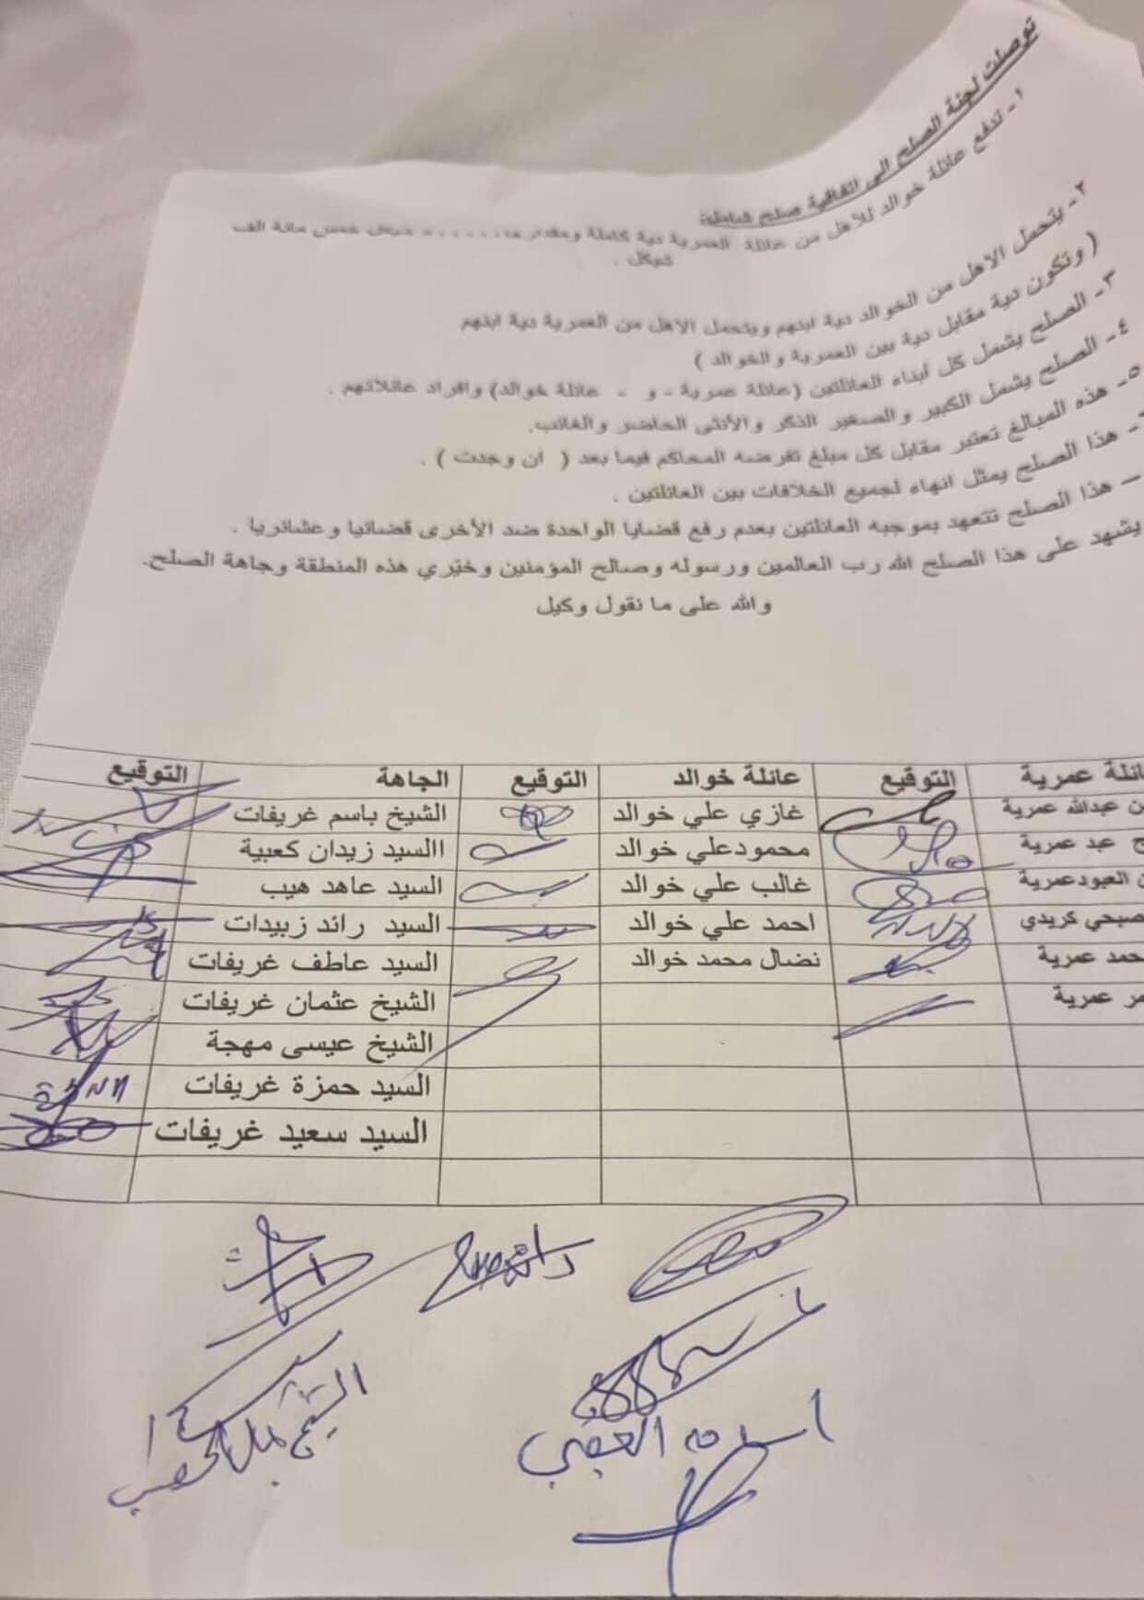 توصلت لجنة الصلح الى اتفاقية صلح شاملة
١- تدفع عائلة خوالد للاهل من عائلة العمرية دية كاملة ومقدارها خمس مائة الف
شيكل .
٢- يتحمل الاهل من الخوالد دية ابنهم ويتحمل الاهل من العمرية دية ابنهم
( وتكون دية مقابل دية بين العمرية والخوالد )
٣- الصلح يشمل كل ابناء العائلتين (عائلة عمرية - و - عائلة خوالد) وافراد عائلاتهم .
٤- الصلح يشمل الكبير و الصغير الذكر و الأنثى الحاضر و الغائب.
٥- هذه المبالغ تعتبر مقابل كل مبلغ تفرضه المحاكم فيما بعد ( ان وجدت ) .
- هذا الصلح يمثل انهاء لجميع الخلافات بين العائلتين .
– هذا الصلح تتعهد بموجبه العائلتين بعدم رفع قضايا الواحدة ضد الأخرى قضائيا و عشائريا .
يشهد على هذا الصلح الله رب العالمين ورسوله وصالح المؤمنين وخيّري هذه المنطقة وجاهة الصلح.
والله على ما نقول وكيل
عائلة عمرية التوقيع عائلة خوالد التوقيع الجاهة التوقيع
بن عبدالله عمرية غازي علي خوالد الشيخ باسم غريفات
عبد عمرية محمودعلي خوالد االسيد زيدان كعبية
العبودعمرية غالب علي خوالد السيد عاهد هيب
صبحي كريدي احمد علي خوالد السيد رائد زبيدات
عمرية نضال محمد خوالد السيد عاطف غريفات
عمرية الشيخ عثمان غريفات
الشيخ عيسى مهجة
السيد حمزة غريفات
السيد سعيد غريفات
الشيخ